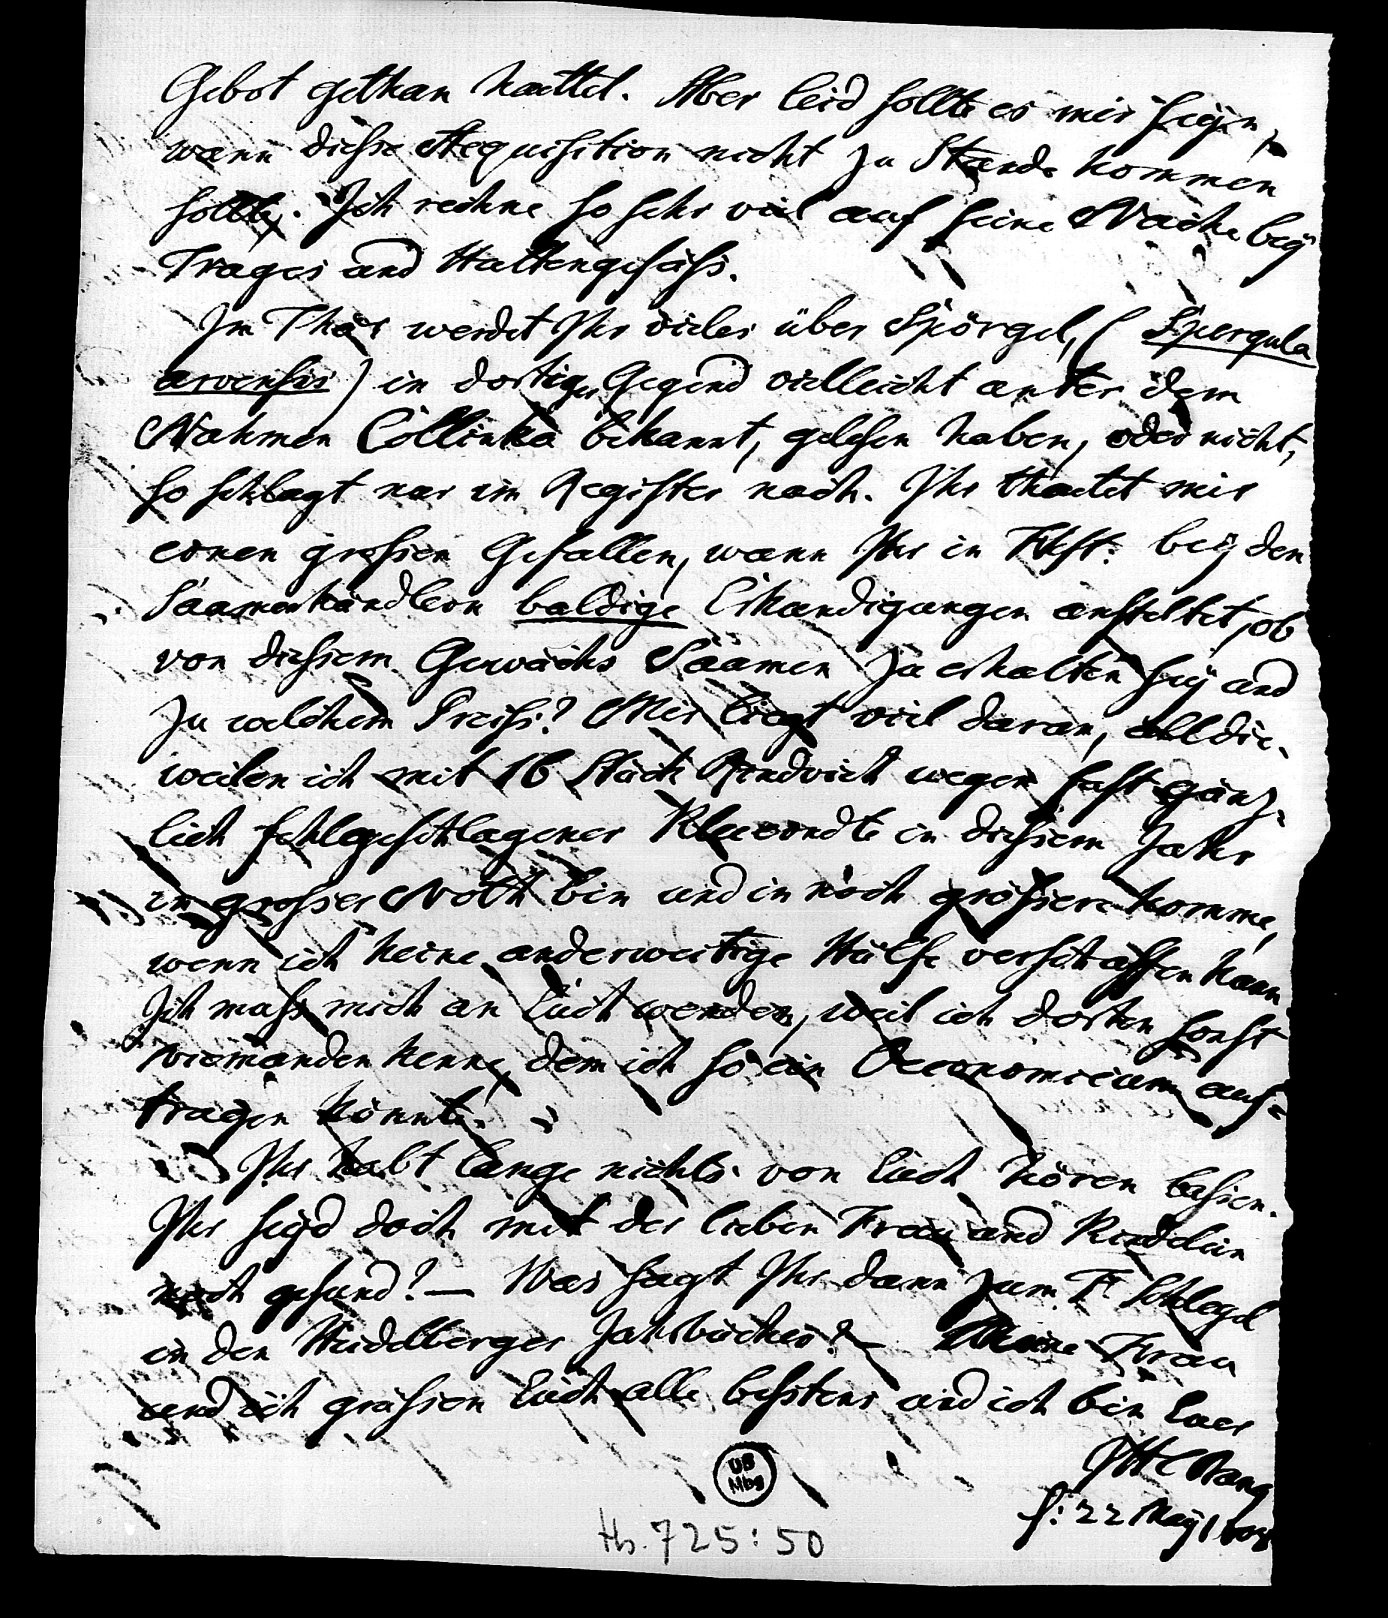 Gebot gethan haettet. Aber leid sollte es mir seÿn,
wann diese Aequisition nicht zu Stande kommen
sollte. Ich rechne so sehr viel auf seine Nähe beÿ
Trages and Hüttengesäss.
Im Thaer werdet Ihr vieles über Spörgel, (Spergula
arvensis) in dortiger Gegend vielleicht unter dem
Nahmen Cöllinka bekannt, gelesen haben, oder nicht,
so schlagt nur im Register nach. Ihr thaetet mir
einen grossen Gefallen, wann Ihr in Fkft. beÿ den
Säamenhändlern baldige Erkundigungen anstelltet, ob
von diesem Gewächs Säamen zu erhalten seÿ und
zu welchem Preiss? Mir liegt viel daran, alldie-
weilen ich mit 16 Stück Rindvieh wegen fast gänz-
lich fehlgeschlagener Kleeerndte in diesem Jahr
in grosser Noth bin und in noch grössere komme,
wenn ich keine anderweitige Hülfe verschaffen kann
Ich muss mich an Euch wenden, weil ich dorten sonst
niemanden kenne, dem ich so ein Oeconomicum auf-
tragen könnte.
Ihr habt lange nichts von Euch hören lassen.
Ihr seÿd doch mit der lieben Frau und Kindelein
noch gesund? — Was sagt Ihr dann zum Fr Schlegel
in den Heidelberger Jahrbücher? — Meine Frau
und ich grüssen Euch alle besstens und ich bin Euer
JHC Bang
f: 22 Maÿ 1808
UB
Mbg
Hs. 725:50